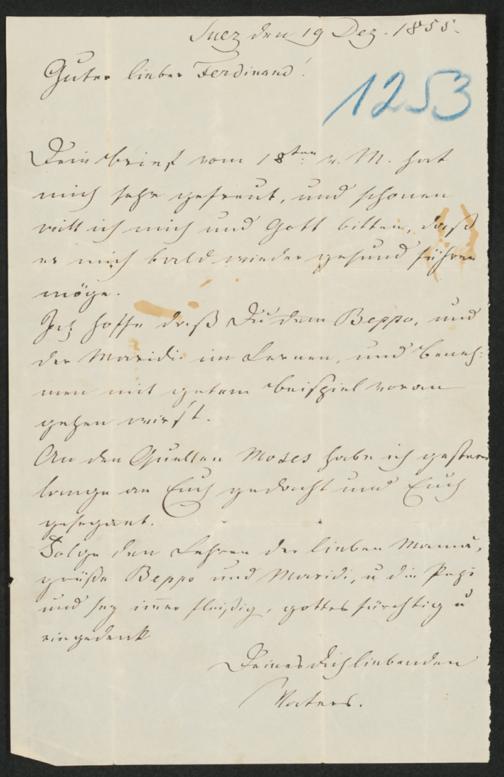 Suez den 19 Dez. 1855.
Guter lieber Ferdinand!
1253
Dein Brief vom 18ten v. M. hat
mich sehr gefreut, und schonen
will ich mich und Gott bitten, daß
er mich bald wieder gesund führen
möge.
Ich hoffe daß Du dem Beppo, und
der Maridi im Lernen, und Beneh=
men mit gutem Beispiel voran
gehen wirst.
An den Quellen Moses habe ich gestern
lange an Euch gedacht und Euch
gesegnet.
Folge den Lehren der lieben Mama,
grüße Beppo und Maridi, u die Pepi
und sey immer fleißig, gottesfürchtig u
eingedenk
Deines Dich liebenden
Vaters.